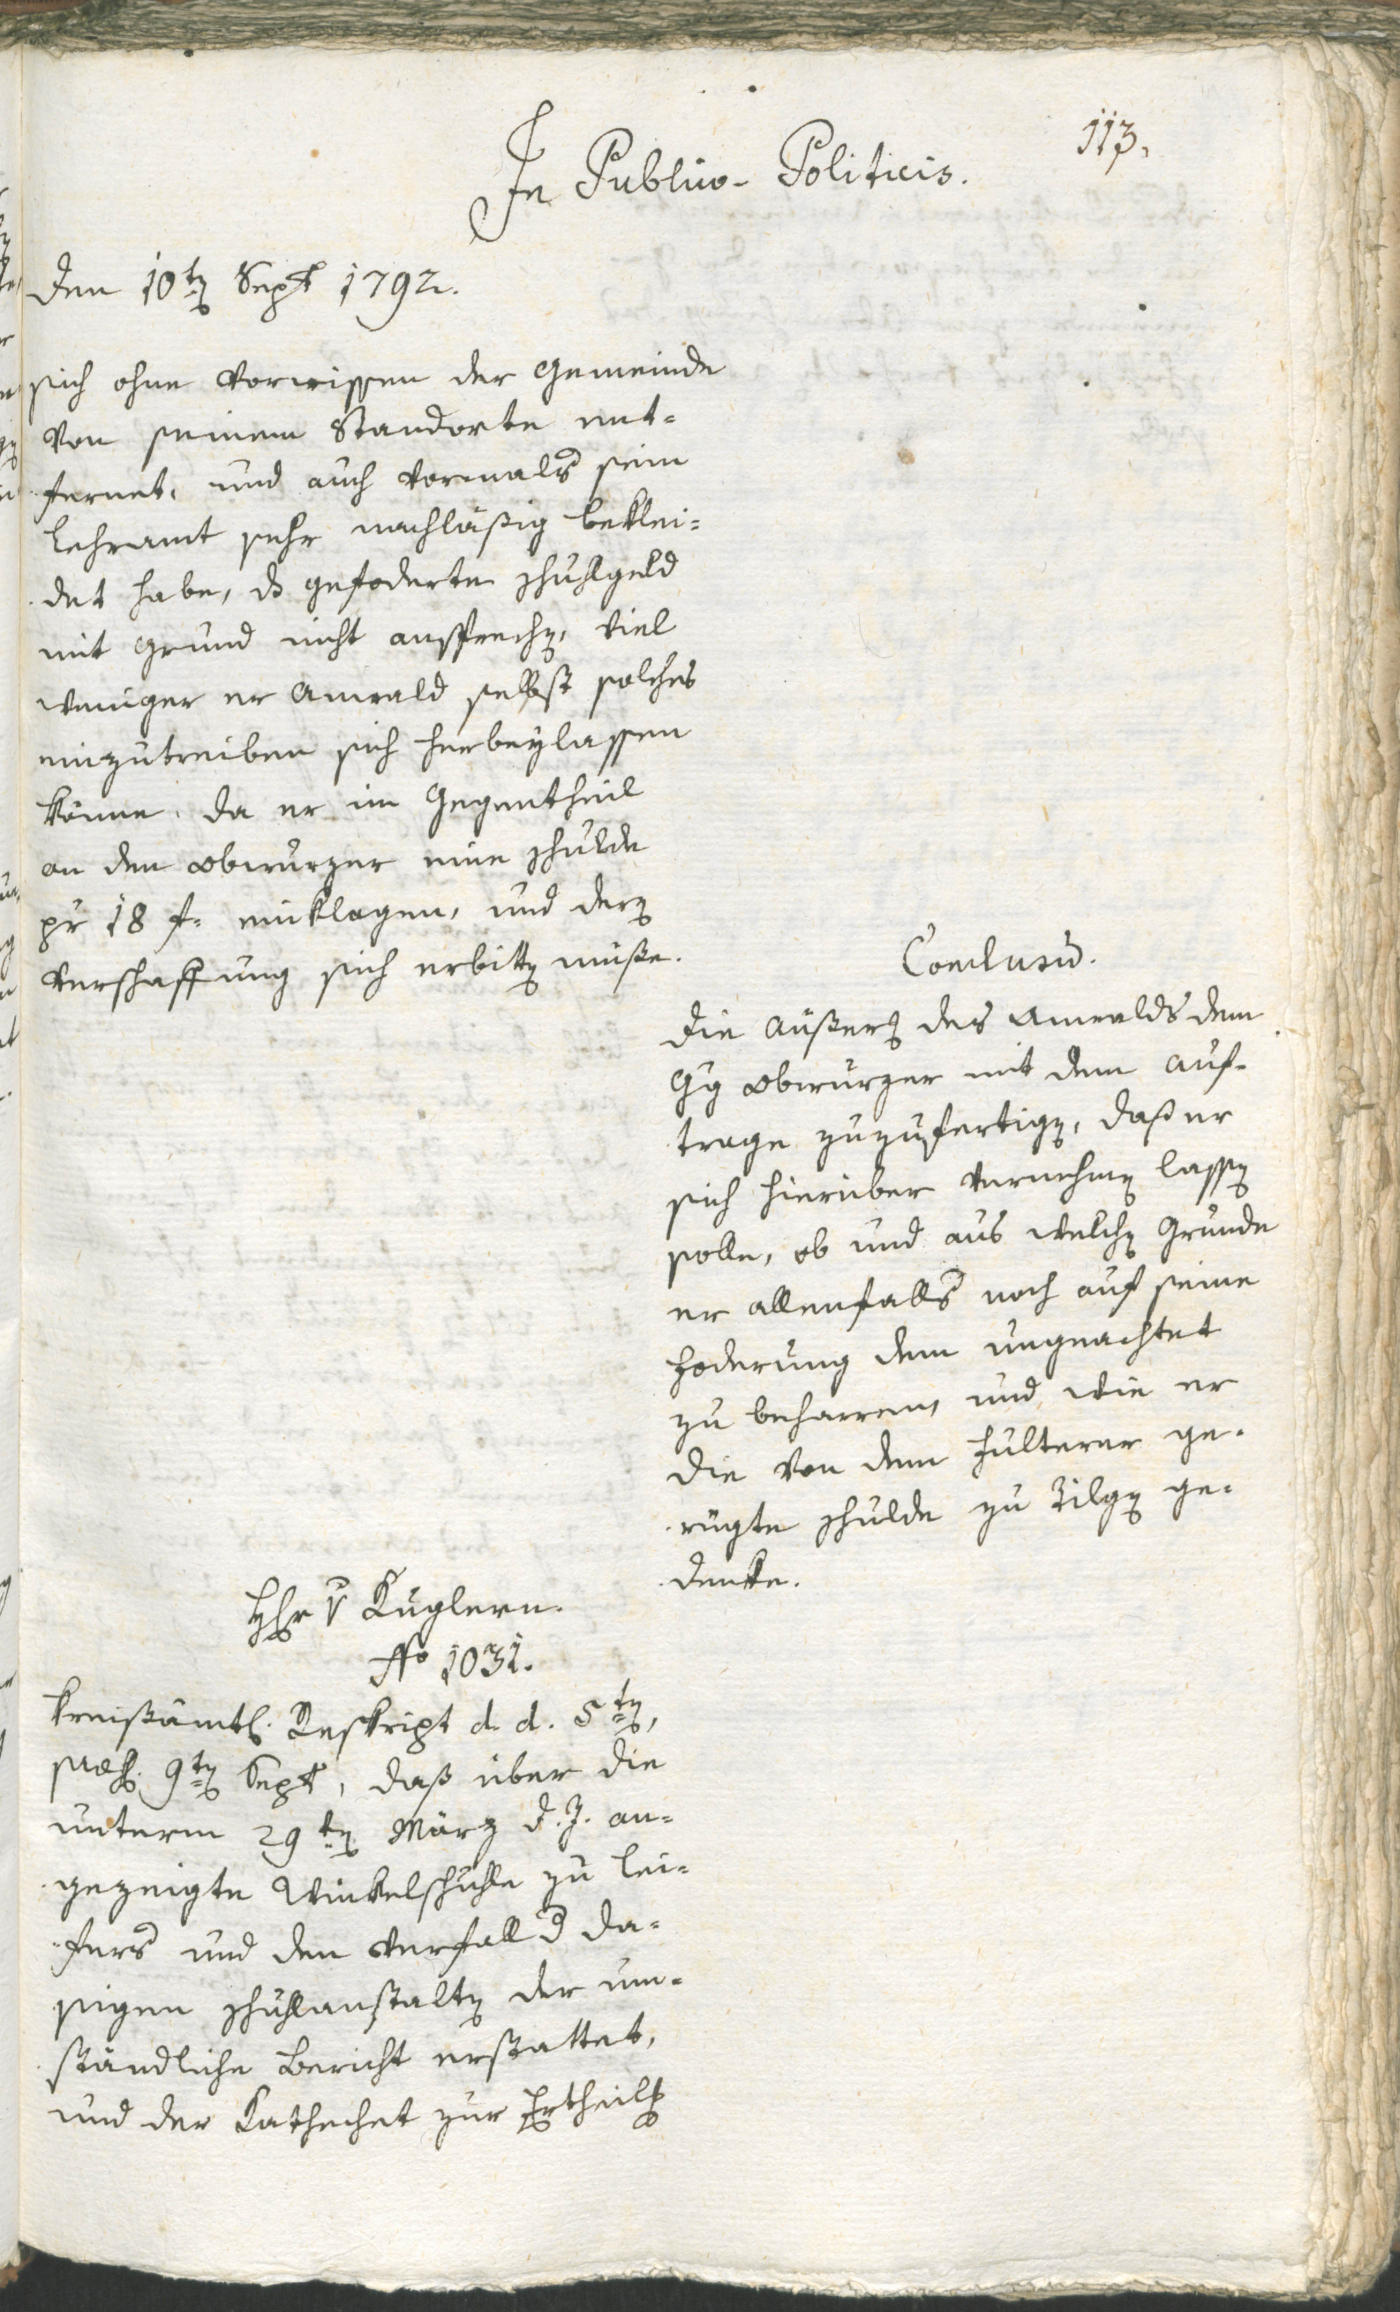 113.
In Publico-Politicis.
Den 10ten Sept 1792.
sich ohne Vorwissen der Gemeinde
von seinem Standorte ent-
fernet, und auch vormals sein
Lehramt sehr nachläßig beklei-
det habe, ds gefoderte Schuhlgeld
mit Grund nicht ansprechen, viel
weniger er Anwald selbst solches
einzutreiben sich herbeylassen
könne, da er im Gegentheil
an den Obwurzer eine Schulde
pr 18 f. einklagen, und deren
Verschaffung sich erbitten müße.
Conclusum.
Die Äußerung des Anwalds dem
Gg Obwurzer mit dem Auf-
trage zuzufertigen, daß er
sich hierüber vernehmen lassen
solle, ob und aus welchen Grunde
er allenfalls noch auf seine
Foderung dem ungeachtet
zu beharren, und wie er
die von dem Hülterer ge-
rügte Schulde zu Tilgen ge-
denke.
Hhr v Kuglern.
No 1031.
Kreißämtl. Reskript d. d. 5ten,
præs. 9ten Sept, daß über die
unterm 29ten März d. J. an-
gezeigte Winkelschuhle zu Lei-
fers und den Verfall d da-
sigen Schuhlanstalten der um-
ständliche Bericht erstattet,
und der Kathechet zur Ertheilung